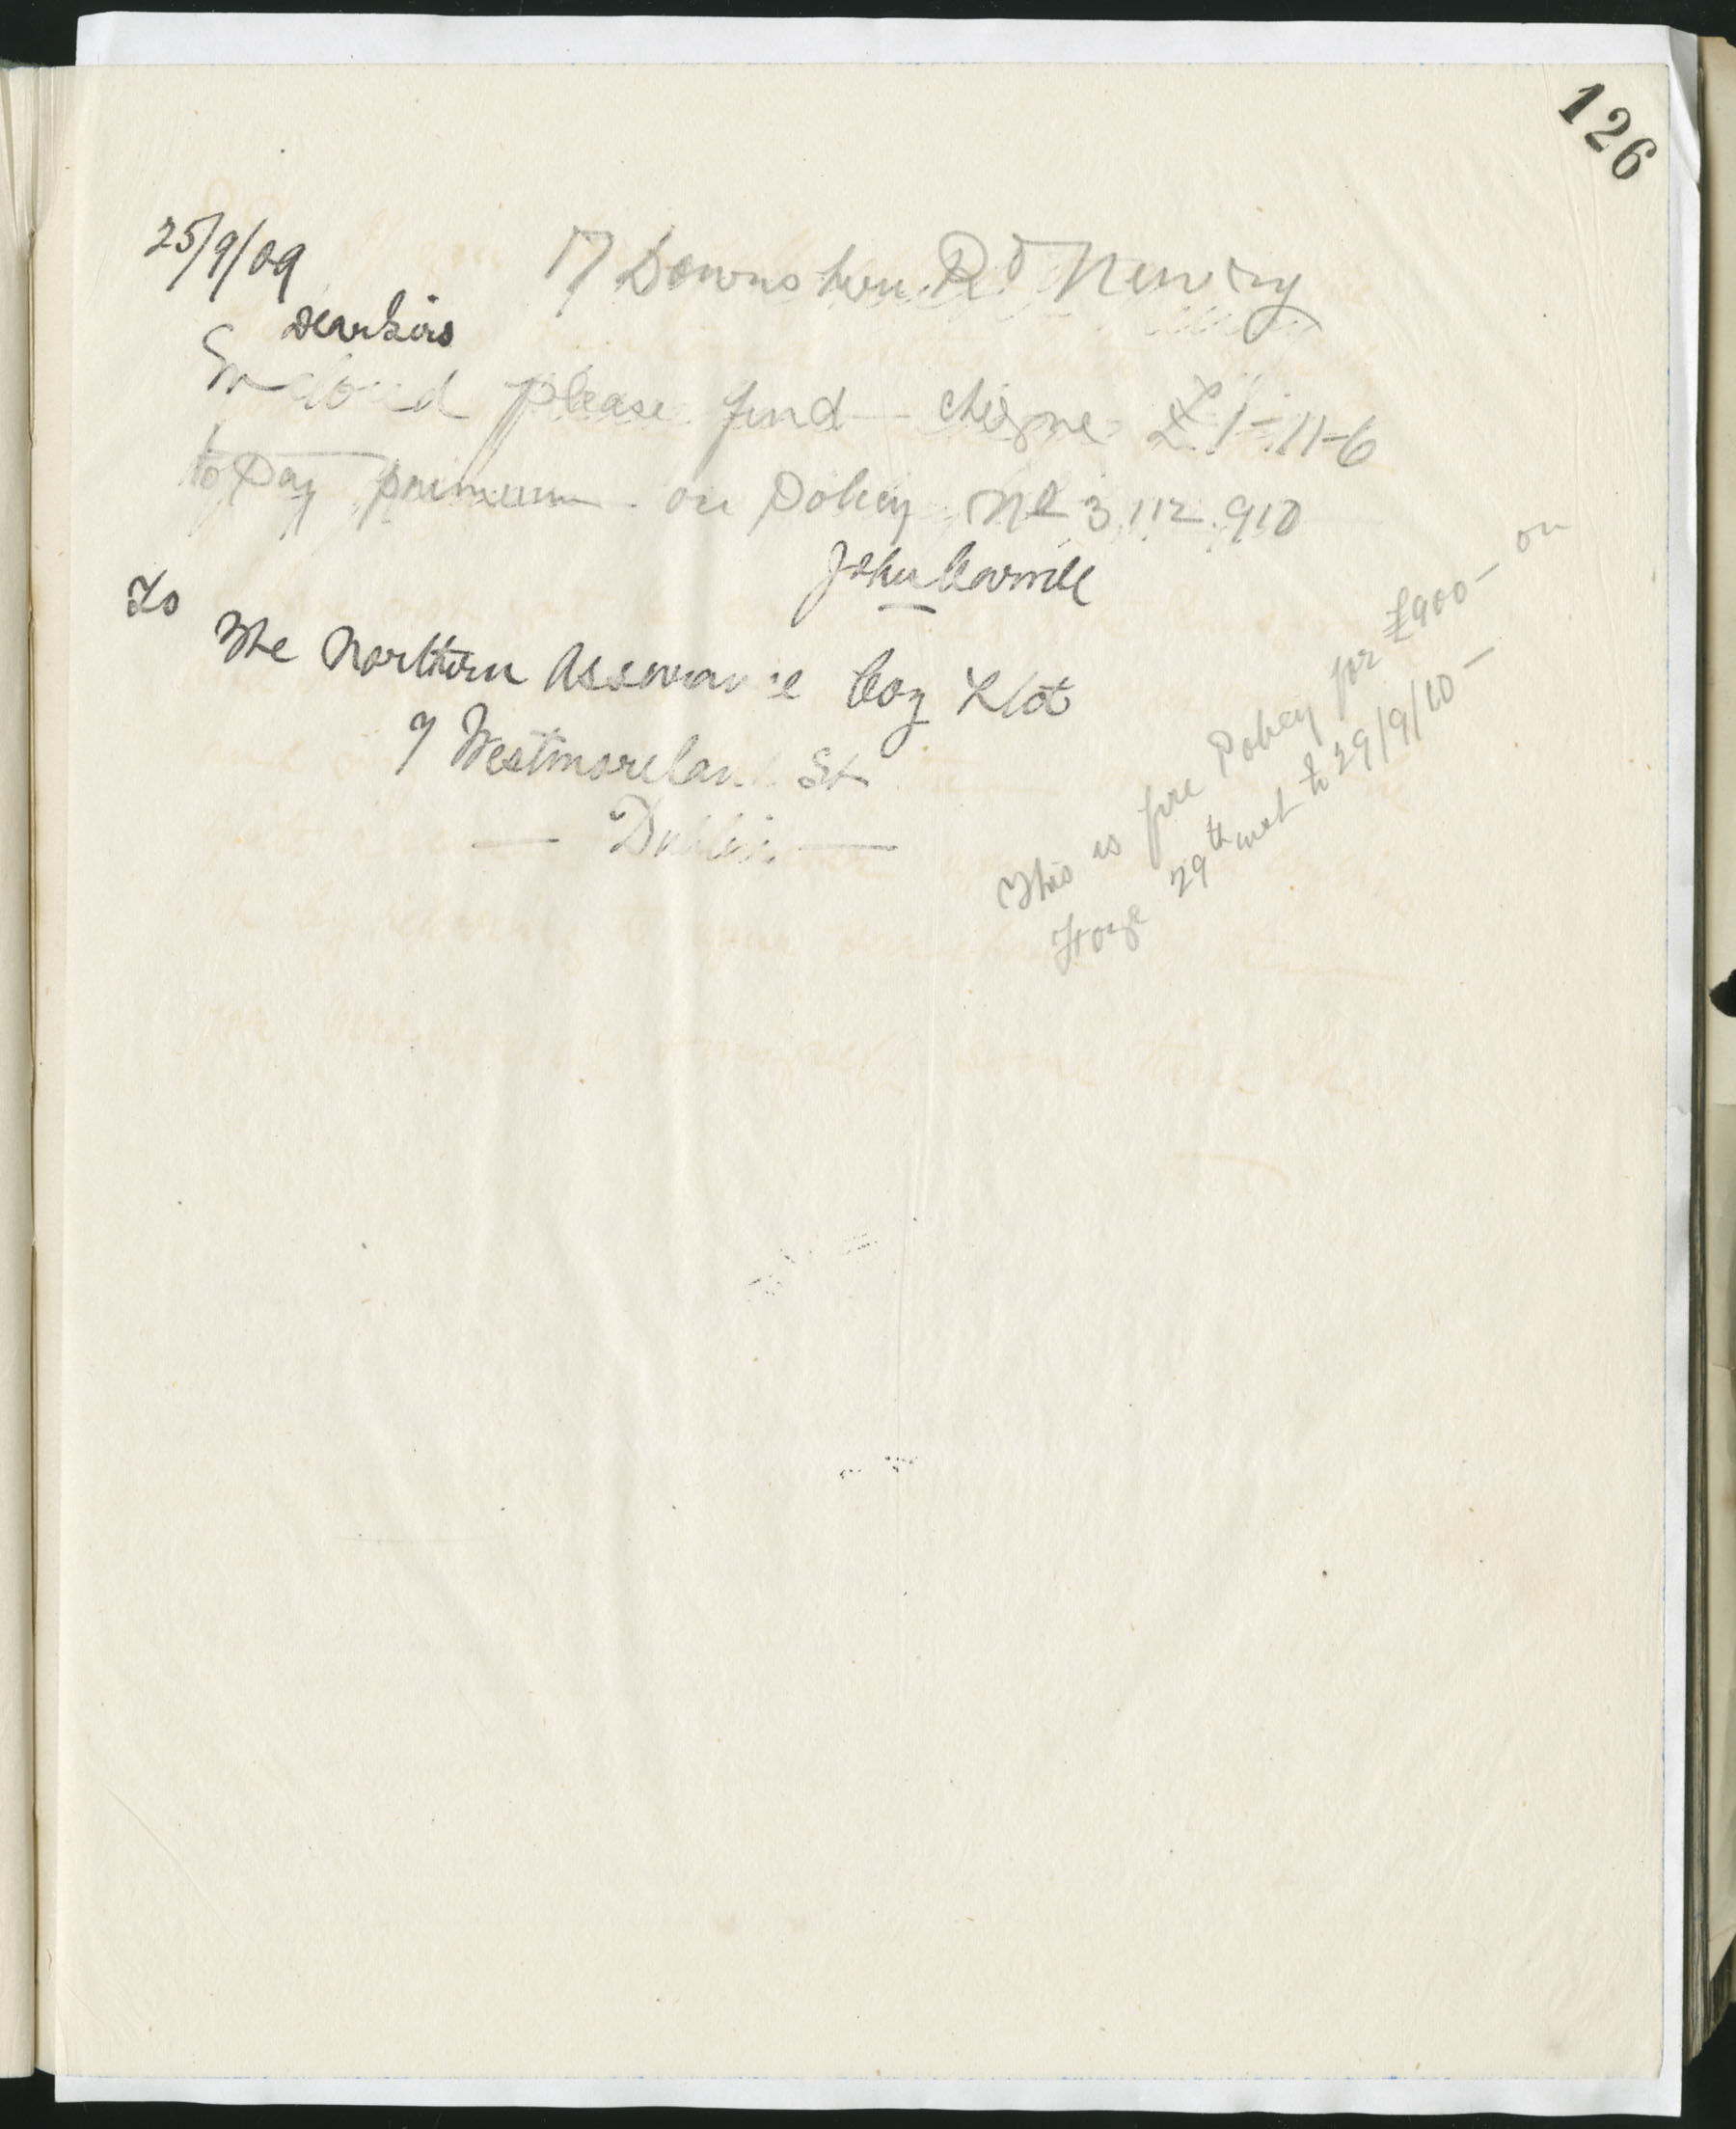 126
25/9/09
17 Downshire Rd Newry
Dear Sirs
Enclosed please find cheque £1-11-6
to Pay premium on Policy No 3.112.910
John Carvill
To
The Northern Assurance Coy Ltd
9 Westmoreland St
— Dublin —
This is fire Policy for £900— on
29th inst to 29/9/10—